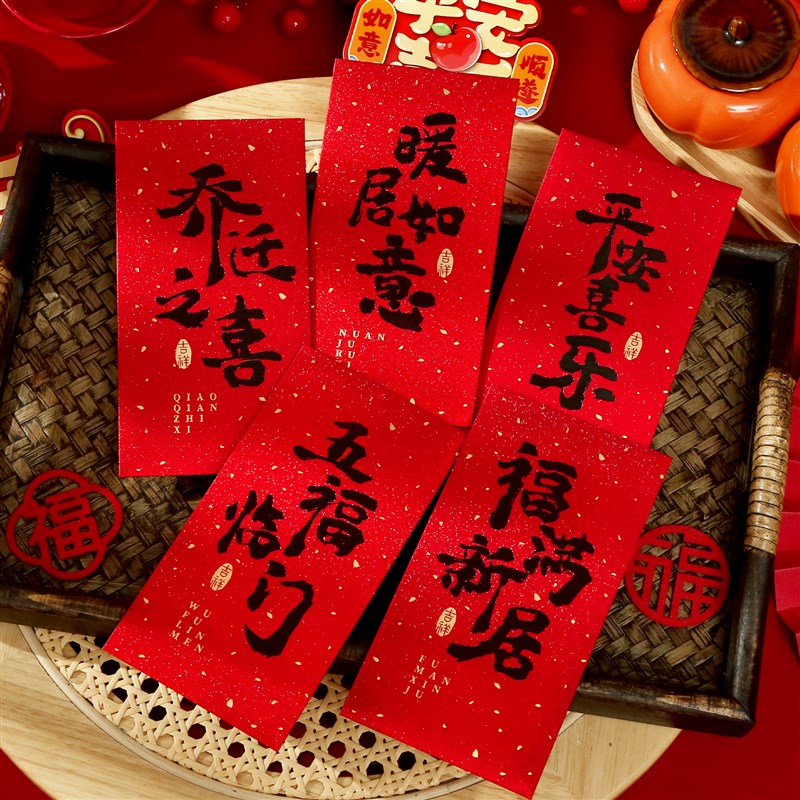 如意
平安
喜乐
順遂
乔迁
之喜
吉祥
QIAO
QIAN
ZHI
XI
暖
居如
意
吉祥
NUAN
JU
RU
平
安
喜
乐
吉祥
五
福
临
门
吉祥
WU
FU
LIN
MEN
福
满
新
居
吉祥
FU
MAN
XIN
JU
福
福